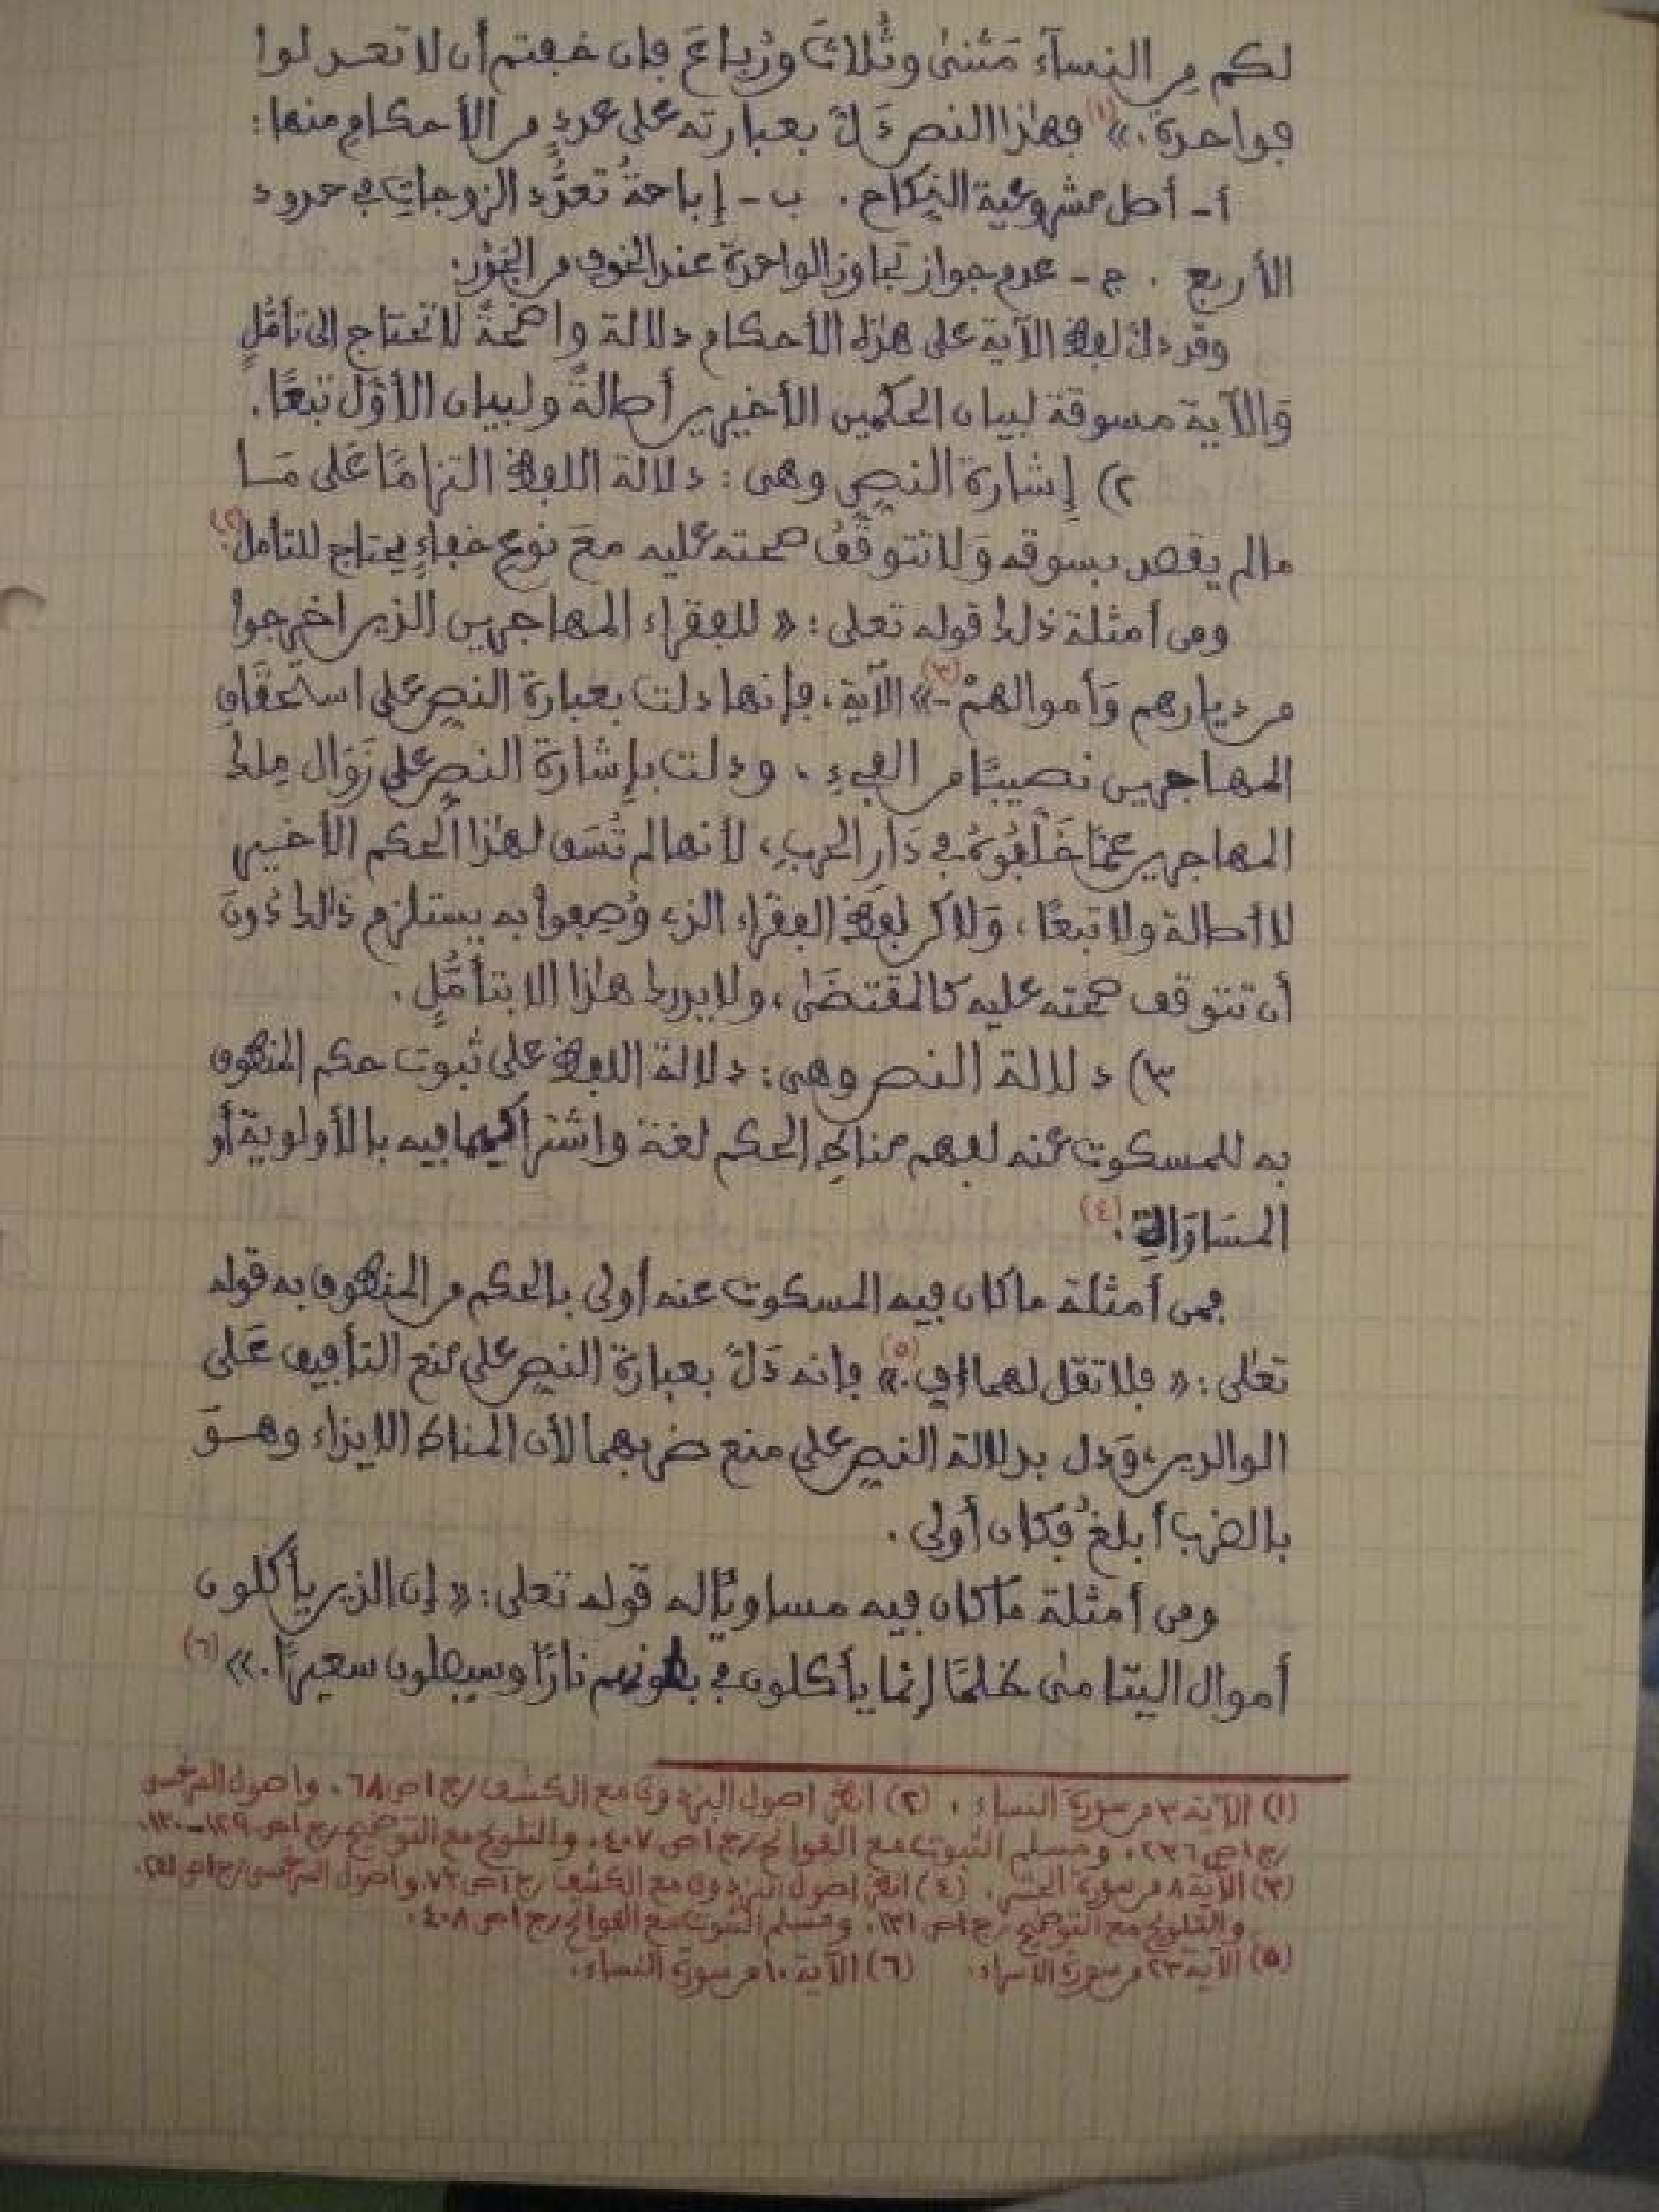 لكم من النسآء مَثنىٰ وثُلاثَ ورُباعَ فإن خفتم أن لا تعدلوا
فواحدةً.»(١) فهٰذا النص دَلَّ بعبارته على عددٍ من الأحكامِ منها:
أ- أصل مشروعية النِّكاح. ب- إباحةُ تعدُّد الزوجاتِ في حدود
الأربع. ج- عدم جواز تجاوز الواحدة عند الخوف من الجَوْر.
وقد دلَّ لفظ الآية على هٰذه الأحكام دلالة واضحةً لا تحتاج الى تأمُّلٍ
وَالآية مسوقة لبيان الحكمين الأخيرين أصالةً ولبيان الأوَّل تبعًا.
٢) إشارة النصِ وهى: دلالة اللفظ التزامًا عَلى مَـا
مالم يقصد بسوقه وَلا تتوقَّفُ صحته عليه معَ نوع خفاءٍ يحتاج للتأمل.(٢)
ومن أمثلة ذلك قوله تعلى: «للفقراء المهاجرين الذين اخرجوا
من ديارهم وَأموالهمْ-»(٣) الآية، فإنها دلت بعبارة النصِ على استحقَاقِ
المهاجرين نصيبًا من الفيءِ، ودلت بإشارة النصِ على زَوَال مِلك
المهاجرين عمَّا خَلَّفُوهُ في دَار الحربِ، لأنها لم تُسَق لهٰذا الحكم الأخير
لا أصالة ولا تبعًا، وَلاكن لفظَ الفقراء الذى وُصِفوا به يستلزم ذالك دُونَ
أن تتوقف صحته عليه كالمقتضَىٰ، ولا يدرك هٰذا الا بتأمُّلٍ.
٣) دلالة النص وهى: دلالة اللفظ على ثبوت حكم المنطوق
به للمسكوت عنه لفهم مناطِ الحكم لغة واشتراكهما فيه بالأولوية أو
المسَاوَاةِ.(٤)
فمن أمثلة ما كان فيه المسكوت عنه أولى بالحكم من المنطوق به قوله
تعٰلى: «فلا تقل لهما افٍ.»(٥) فإنه دَلَّ بعبارة النصِ على منع التأفيف عَلى
الوالدين، وَدل بدلالة النصِ على منع ضربهما لأن المناط الايذاء وهـوَ
بالضرب أبلغُ فكان أولى.
ومن أمثلة مَا كان فيه مساويًا له قوله تعلى: «إن الذين يأكلون
أموال اليتامىٰ ظلمًا إنما يأكلون في بطونهم نارًا وسيصلون سعيرًا.»(٦)
(١) الآية ٣ من سورة النساء. (٢) انظر اصول البزدوى مع الكشف/ج١ص٦٨. واصول السرخسى
/ج١ص٢٣٦. ومسلم الثبوت مع الفواتح/ج١ص٤٠٧. والتلويح مع التوضيح/ج١ص١٢٩-١٣٠.
(٣) الآية ٨ من سورة الحشر. (٤) انظر اصول البزدوى مع الكشف/ج١ص٧٣. واصول السرخسى/ج١ص٢٤١.
والتلويح مع التوضيح/ج١ص١٣١. ومسلم الثبوت مع الفواتح/ج١ص٤٠٨.
(٥) الآية ٢٣ من سورة الاسراء. (٦) الآية ١٠ من سورة النساء.